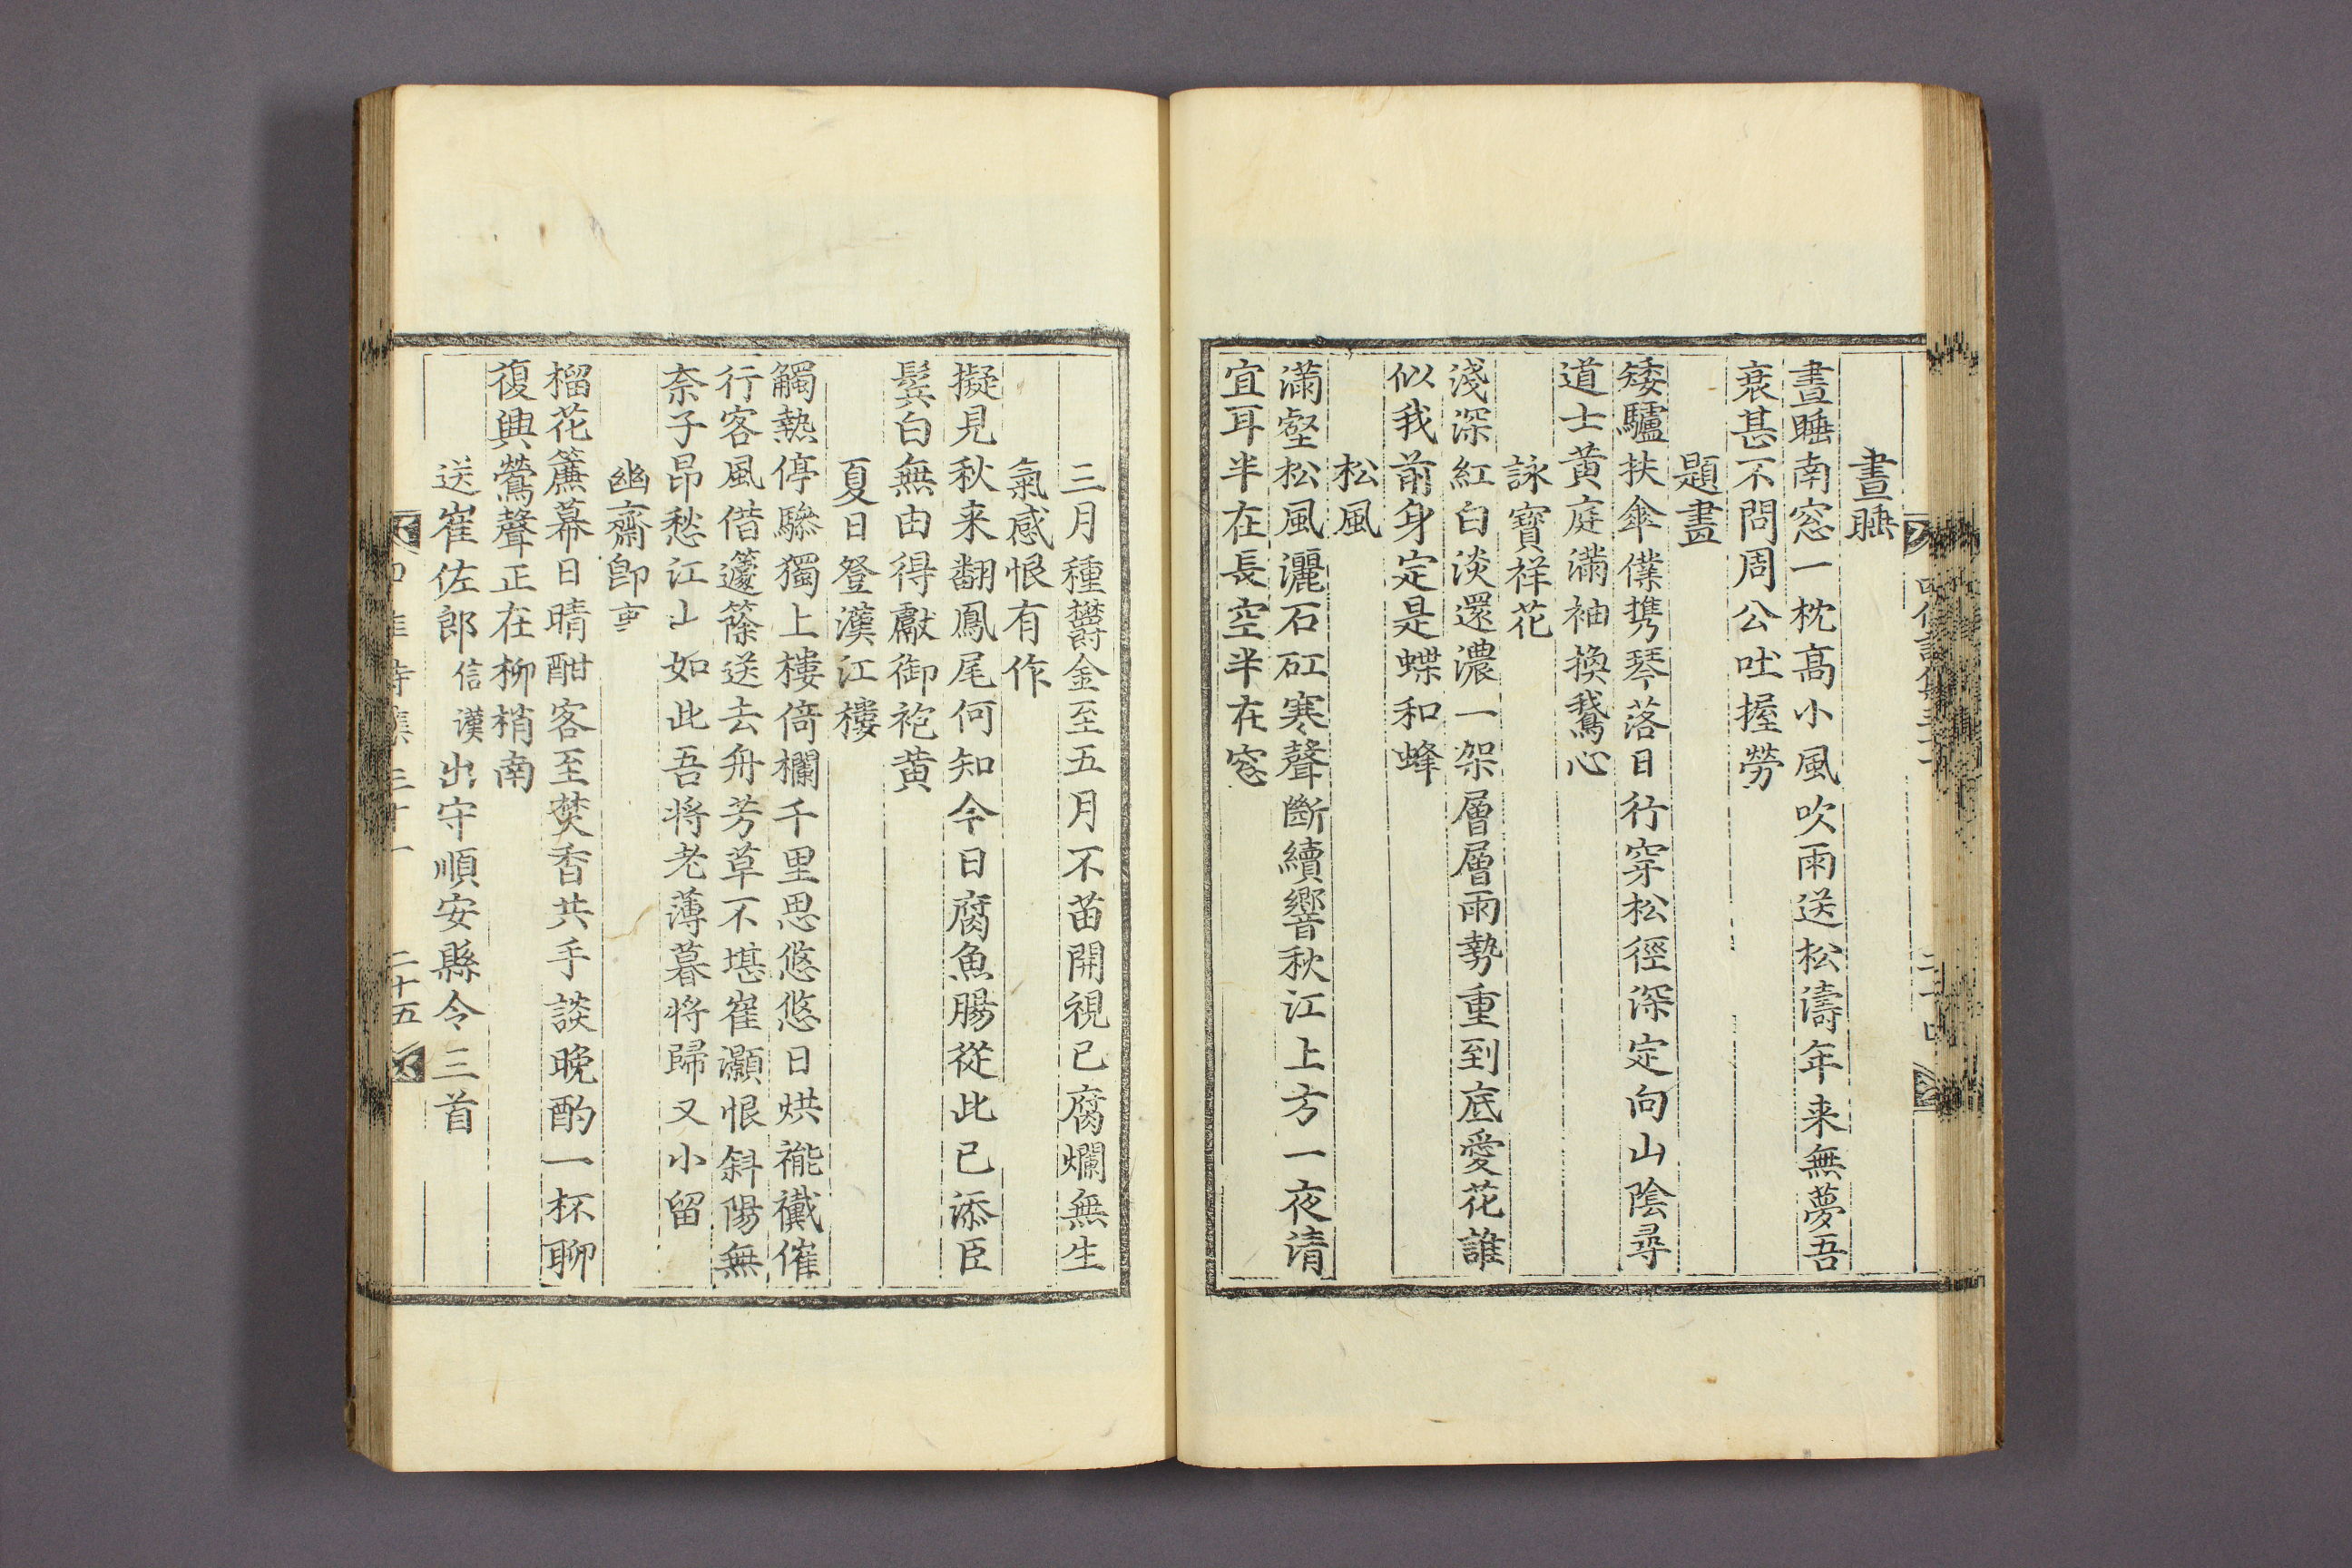 晝睡
晝睡南窓一枕高小風吹雨送松濤年来無夢吾
衰甚不問周公吐握勞
題畫
矮驢扶傘僕携琴落日行穿松徑深定向山陰尋
道士黄庭滿袖換鵞心
詠寶祥花
淺深紅白淡還濃一架層層雨勢重到底愛花誰
似我前身定是蝶和蜂
松風
滿壑松風灑石矼寒聲斷續響秋江上方一夜淸
宜耳半在長空半在窓
三月種欝金至五月不苗開視已腐爛無生
氣感恨有作
擬見秋来翻鳳尾何知今日腐魚腸從此已添臣
鬂白無由得獻御袍黄
夏日登漢江樓
觸熱停驂獨上樓倚欄千里思悠悠日烘襱襶催
行客風借籧篨送去舟芳草不堪崔灝恨斜陽無
奈子昂愁江山如此吾将老薄暮将歸又小留
幽齋卽事
榴花簾幕日晴酣客至焚香共手談晚酌一杯聊
復興鶯聲正在柳梢南
送崔佐郎信漢出守順安縣令三首
二十五